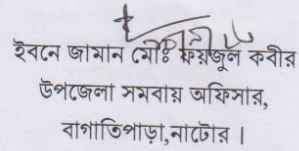 ইবনে জামান মোঃ ফয়জুল কবীর
উপজেলা সমবায় অফিসার,
বাগাতিপাড়া,নাটোর।